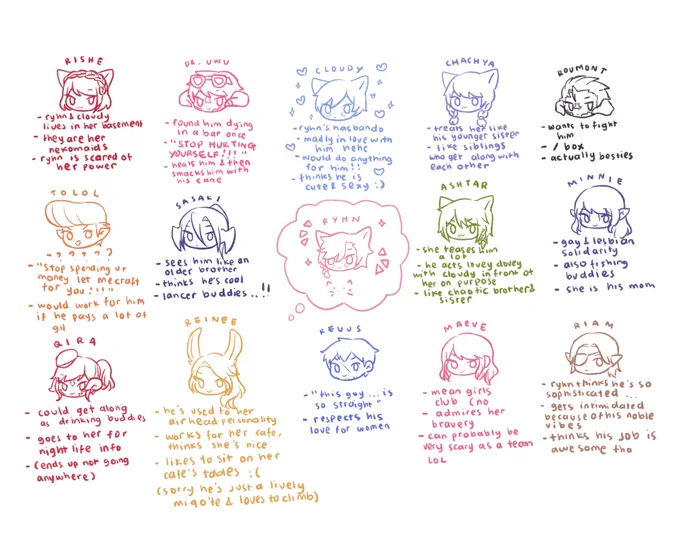 RISHE
- ryhn & cloudy
lives in her basement
- they are her
nekomaids
- ryhn is scared of
her power
DR. UWU
- found him dying
in a bar once
- "STOP HURTING
YOURSELF!!!"
- heals him & then
smacks him with
his cane
CLOUDY
- ryhn's hasbando
- madly in love with
him hehe
- would do anything
for him!!
- thinks he is
cute & sexy :)
CHACHYA
- treats her like
his younger sister
- like siblings
who get along with
each other
ROUMONT
- wants to fight
him
- / box
- actually besties
TOLOL
- ? ? ? ? ?
- "Stop spending ur
money let me craft
for you!!!"
- would work for him
if he pays a lot of
gil
SASAKI
- sees him like an
older brother
- thinks he's cool
- lancer buddies ..!!
RYHN
ASHTAR
- she teases him
a lot
- he acts lovey dovey
with cloudy in front of
her on purpose
- like chaotic brother &
sister
MINNIE
- gay & lesbian
solidarity
- also fishing
buddies
- she is his mom
QIRA
- could get along
as drinking buddies
- goes to her for
night life info
- (ends up not going
anywhere)
REINEE
- he's used to her
airhead personality
- works for her cafe,
thinks she's nice
- likes to sit on her
cafe's tables :(
(sorry he's just a lively
miqo'te & loves to climb)
REUUS
- "this guy ... is
so straight"
- respects his
love for women
MAEVE
- mean girls
club (no
- admires her
bravery
- can probably be
very scary as a team
LOL
RIAM
- ryhn thinks he's so
sophisticated ...
- gets intimidated
because of his noble
vibes
- thinks his job is
awesome tho